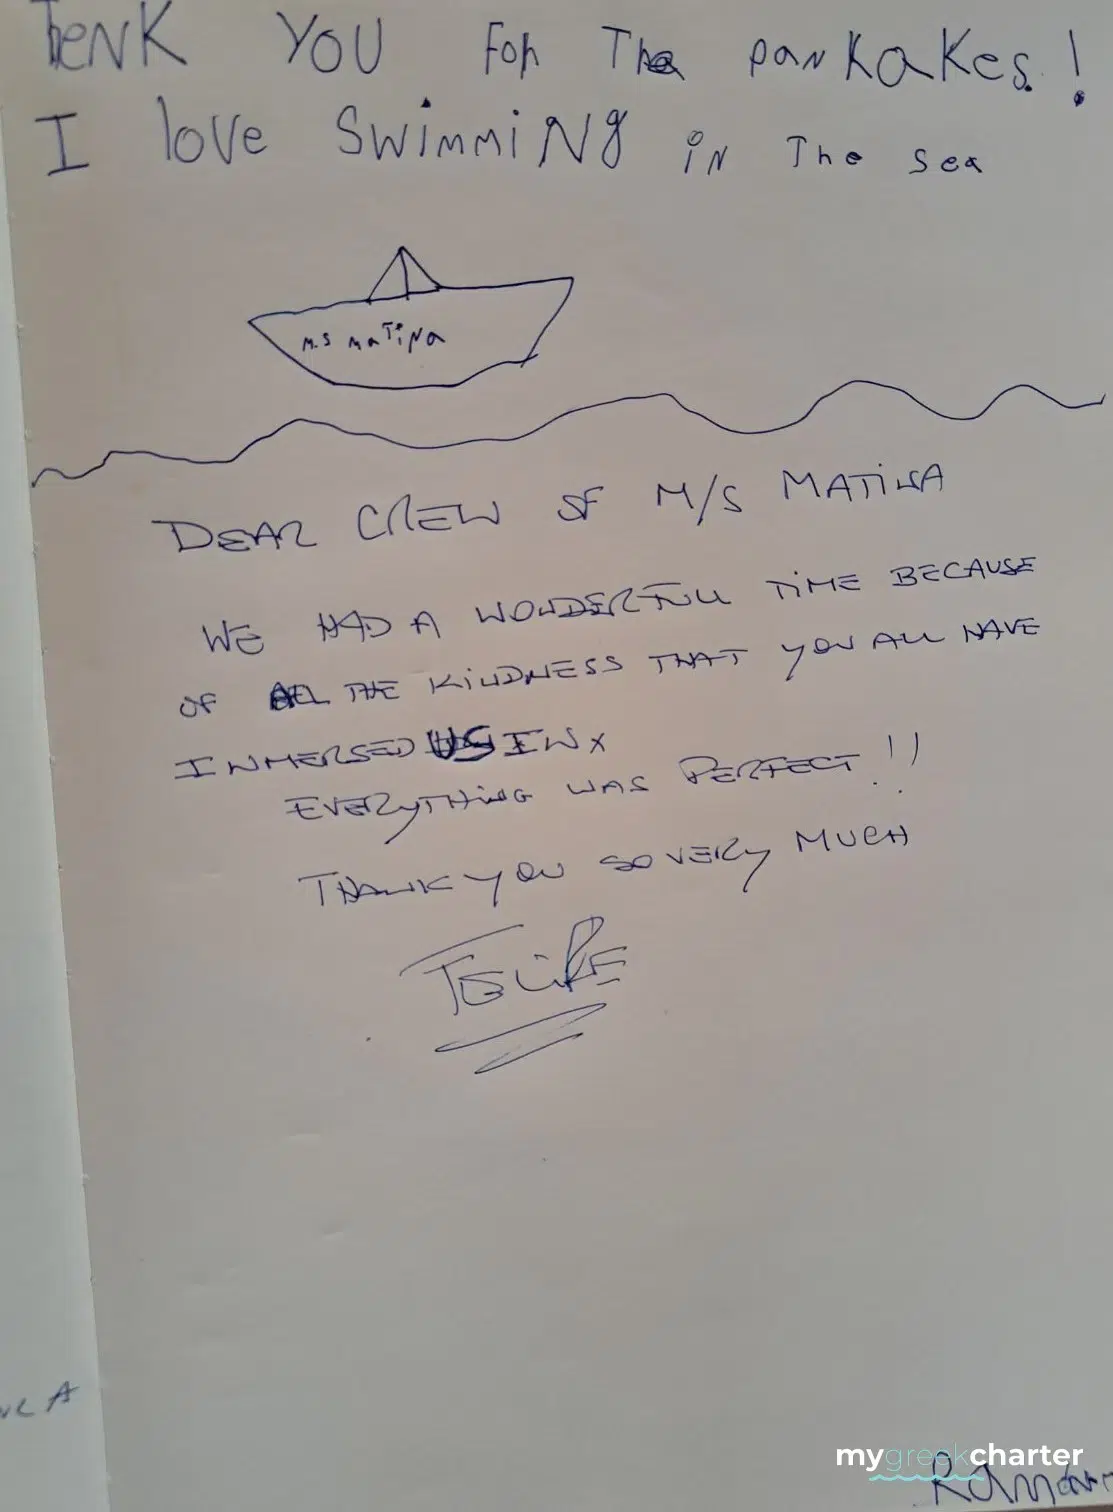 THENK YOU FOR The panKaKes!
I love SwimmiNg iN The sea
M.S MaTiNa
DEAR CREW OF M/S MATINA
WE HAD A WONDERFULL TIME BECAUSE
OF ALL THE KINDNESS THAT YOU ALL HAVE
INMERSED US IN x
EVERYTHING WAS PERFECT!!
THANK YOU SO VERY MUCH
FELIPE
mygreekcharter